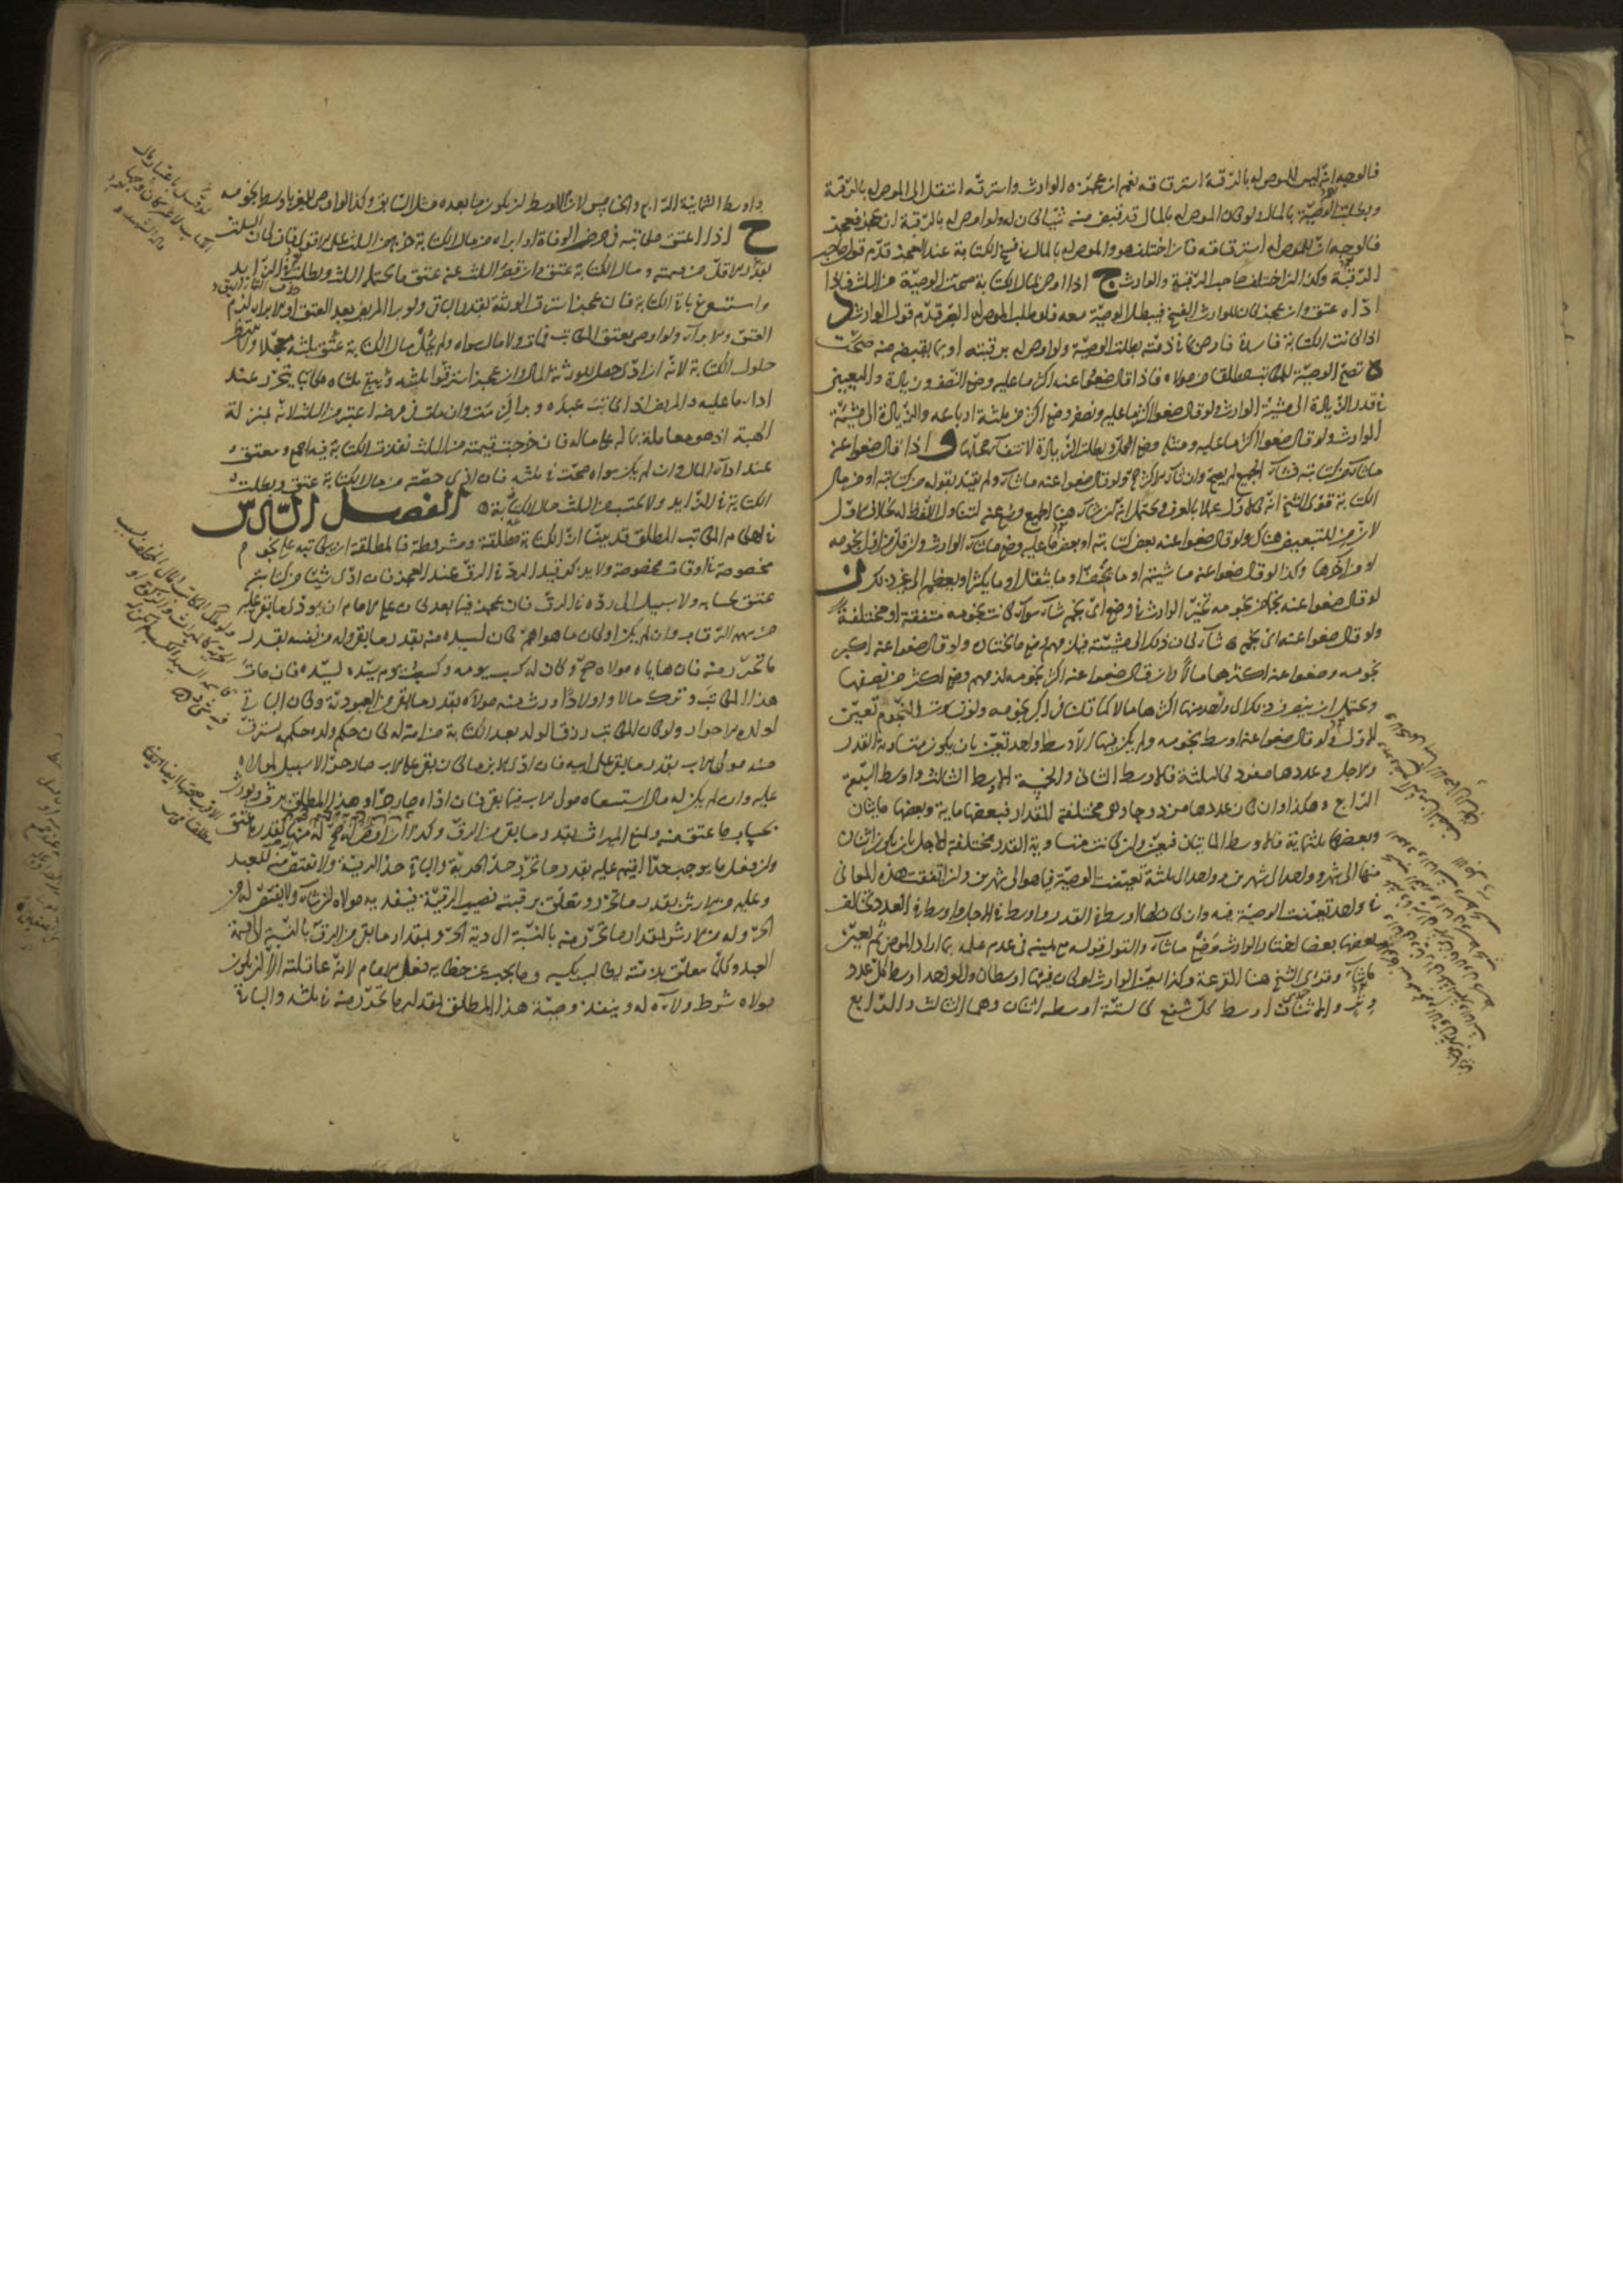 فالوجه انه ليس للموصى له بالرقبة استرقاقه نعم ان عجزه الوارث واسترقه انتقل الى الموصى له بالرقبة
وبطلت الوصية بالمال ولو كان الموصى له بالمال قد قبض منه شيئا كان له ولو اوصى له بالرقبة ان عجز فعجز
فالوجه ان للموصى له استرقاقه فان اختلف هو والموصى له بالمال في فسخ الكتابة عند العجز قدم قول صاحب
الرقبة وكذا ان اختلف صاحب الرقبة والوارث ج اذا اوصى بمال الكتابة صحت الوصية من الثلث فاذا
اداه عتق وان عجز كان للوارث الفسخ فيبطل الوصية معه فلو طلب الموصى له الصبر قدم قول الوارث د
اذا كانت الكتابة فاسدة فاوصى بما في ذمته بطلت الوصية ولو اوصى له برقبته او بما يقبضه منه صحت
ه تصح الوصية للمكاتب المطلق من مولاه فاذا قال ضعوا عنه اكثر ما عليه وضع النصف وزيادة والتعيين
في قدر الزيادة الى مشية الوارث ولو قال ضعوا اكثر ما عليه ونصفه وضع اكثر من ثلثة ارباعه والزيادة الى مشية
الوارث ولو قال ضعوا اكثر ما عليه ومثله وضع الكل وبطلت الزيادة لانتفاء محلها و اذا قال ضعوا عنه
ما شاء من كتابته فشاء الجميع لم يصح وان شاء الاكثر صح ولو قال ضعوا عنه ما شاء ولم يقيد بقوله من كتابته او من مال
الكتابة قوى الشيخ انه كالاول عملا بالعرف ويحتمل انه ان شاء هنا الجميع وضع عنه لتناول اللفظ له بخلاف الاول
لان من للتبعيض هناك ولو قال ضعوا عنه بعض كتابته او بعض ما عليه وضع ما شاء الوارث وان قل من اقل نجومه
او من اكثرها وكذا لو قال ضعوا عنه ما شيتم او ما يخف او ما يثقل او ما يكثر او يعظم الى غير ذلك ز
لو قال ضعوا عنه نجما من نجومه تخير الوارث في وضع اي نجم شاء سواء كانت نجومه متفقة او مختلفة
ولو قال ضعوا عنه اي نجم شاء كان ذلك الى مشيته فيلزمهم وضع ما يختاره ولو قال ضعوا عنه اكبر
نجومه وضعوا عنه اكثرها مالا وان قال ضعوا عنه اكثر نجومه لزمهم وضع اكثر من نصفها
ويحتمل ان ينصرف ذلك الى واحد منها اكثرها مالا كما قلنا في اكبر نجومه ولو تساوت النجوم تعين
الاول ولو قال ضعوا عنه اوسط نجومه ولم يكن فيها الا وسط واحد تعين بان يكون متساوية القدر
والاجل وعددها مفرد كالثلثة فالاوسط الثاني والخمسة الاوسط الثالث واوسط السبعة
الرابع وهكذا وان كان عددها مزدوجا وهي مختلفة المقدار فبعضها ماية وبعضها مايتان
وبعضها ثلثماية فالاوسط المايتان فيتعين وان كانت متساوية القدر مختلفة الاجل بان يكون اثنان
منها الى شهر وواحد الى شهرين وواحد الى ثلثة تعينت الوصية فيما هو الى شهرين وان اتفقت هذه المعاني
في واحد تعينت الوصية فيه وان كان لها اوسط في القدر واوسط في الاجل واوسط في العدد يخالف
بعضها بعضا اختار الوارث وضع ما شاء والقول قوله مع يمينه في عدم علمه بما اراد الموصي ثم يعين
ما شاء وقوى الشيخ هنا القرعة وكذا يعين الوارث لو كان فيها اوسطان والواحد اوسط كل عدد
وتر والاثنان اوسط كل شفع كالستة اوسطه اثنان وهما الثالث والرابع
واوسط الثمانية الرابع والخامس لان الاوسط ان يكون ما بعده مثل السابق وكذا لو اوصى للغير باوسط نجومه
ح اذا اعتق مكاتبه في مرض الوفاة او ابراه من مال الكتابة خرج من الثلث على الاقوى فان كان الثلث
بقدر الاقل من قيمته ومال الكتابة عتق وان قصر الثلث عنه عتق ما يحتمله الثلث وبطلت في الزايد
واستسعى في باقي الكتابة فان عجز استرق الورثة بقدر الباقي ولو برا المريض بعد العتق او الابراء لزم
العتق والابراء ولو اوصى بعتق المكاتب فمات ولا مال سواه ولم يحل مال الكتابة عتق ثلثه معجلا ولا ينتظر
حلول الكتابة لانه ان ادى حصل للورثة المال وان عجز استرقوا ثلثيه ويبقى ثلثاه مكاتبا يتحرر عند
اداء ما عليه والمريض اذا كاتب عبده وبرا لزمت وان مات في مرضه اعتبر من الثلث لانه بمنزلة
الهبة اذ هو معاملة بماله على ماله فان خرجت قيمته من الثلث نفذت الكتابة فيه اجمع ويعتق
عند اداء المال وان لم يكن سواه صحت في ثلثه فان ادى حصته من مال الكتابة عتق وبطلت
الكتابة في الزايد ولا يحتسب من الثلث مال الكتابة الفصل السادس
في احكام المكاتب المطلق قد بينا ان الكتابة مطلقة ومشروطة فالمطلقة ان يكاتبه على نجوم
مخصوصة في اوقات مخصوصة ولا يذكر قيد الرد في الرق عند العجز فان ادى شيئا من كتابته
عتق بحسابه ولا سبيل الى رده في الرق فان عجز فيما بعد كان على الامام ان يودي ما بقي عليه
من سهم الرقاب وان لم يكن او كان ما هو اهم كان لسيده منه بقدر ما بقي وله من نفسه بقدر
ما تحرر منه فان هاياه مولاه صح وكان له كسب يومه وكسب يوم سيده لسيده فان مات
هذا المكاتب وترك مالا واولادا ورث منه مولاه بقدر ما بقي من العبودية وكان الباقي
لولده الاحرار ولو كان المكاتب رزق الولد بعد الكتابة من امة له كان حكم ولده حكمه يسترق
منه مولى الاب بقدر ما بقي على ابيه فان ادى الابن ما كان بقي على الاب صار حرا لا سبيل لمولاه
عليه وان لم يكن له مال استسعاه مولى الاب فيما بقي فان اداه صار حرا وهذا المطلق يرث ويورث
بحساب ما عتق منه ويمنع الميراث بقدر ما بقي من الرق وكذا ان اوصى له صح له منها بقدر ما عتق
وان فعل ما يوجب حدا اقيم عليه بقدر ما تحرر حد الحرية والباقي حد الرقية ولا يقتص منه للعبد
وعليه من الارش بقدر ما تحرر ويتعلق برقبته نصيب الرقية فيفديه مولاه ان شاء ولا يقتص له من
الحر وله من الارش بمقدار ما تحرر منه بالنسبة الى دية الحر وبمقدار ما بقي من الرق بالنسبة الى قيمة
العبد وكلما تعلق بذمته يطالب بكسبه وما يجب عن خطايه فعلى الامام لانه عاقلته الا ان يكون
مولاه شرط ولاءه له وينفذ وصية هذا المطلق بقدر ما تحرر منه في ثلثه والباقي